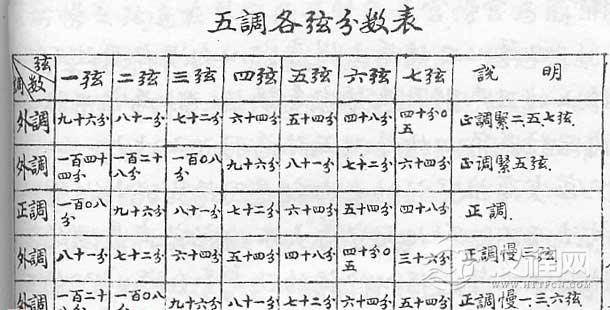 五調各弦分数表
弦 調数 一弦 二弦 三弦 四弦 五弦 六弦 七弦 説明
外調 九十六分 八十一分 七十二分 六十四分 五十四分 四十八分 四十分0五 正調緊二.五.七弦.
外調 一百四十四分 一百二十八分 一百0八分 九十六分 八十一分 七十二分 六十四分 正调緊五弦.
正調 一百0八分 九十六分 八十一分 七十二分 六十四分 五十四分 四十八分 正調.
外調 八十一分 七十二分 六十四分 五十四分 四十八分 四十分0五 三十六分 正調慢三弦.
外調 一百二十八分 一百0八分 九十六分 八十一分 七十二分 六十四分 五十四分 正調慢一.三.六弦
WWW.HTTPCN.COM